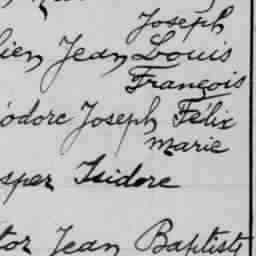 Joseph
lien Jean Louis
François
éodore Joseph Félix
Marie
sper Isidore
tor Jean Baptiste